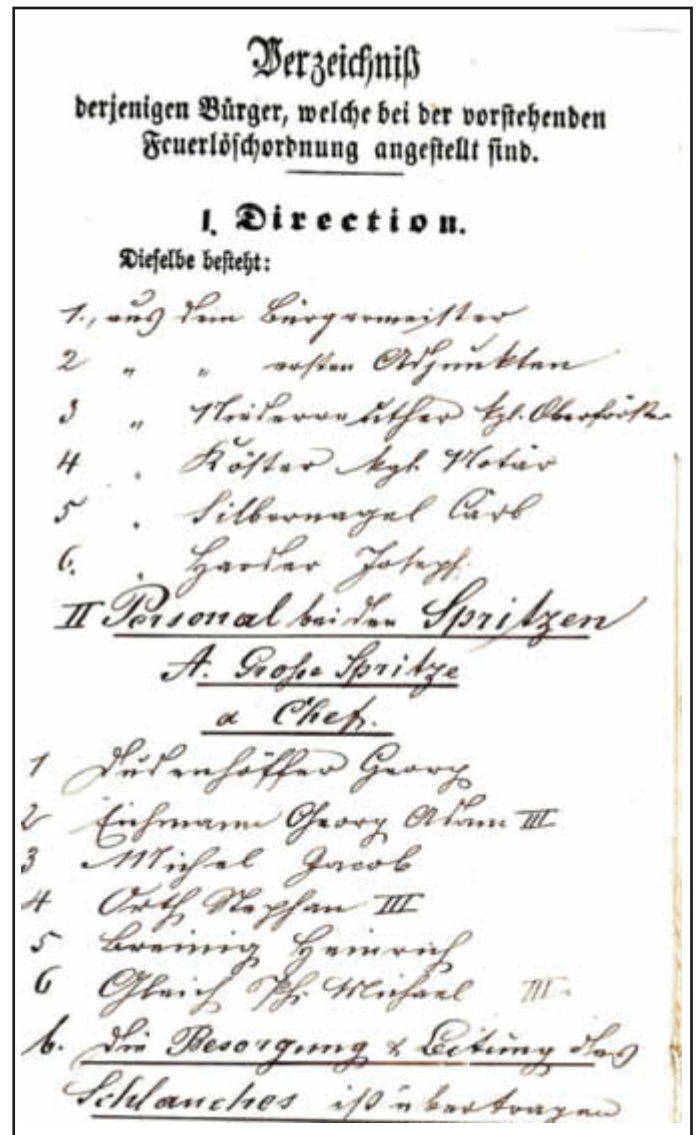 Verzeichniß
derjenigen Bürger, welche bei der vorstehenden
Feuerlöschordnung angestellt sind.
I. Direction.
Dieselbe besteht:
1., aus dem Bürgermeister
2 " " ersten Adjunkten
3 " Niederreuther kgl. Oberförster
4 " Köster kgl. Notär
5 " Silbernagel Carl
6. " Harder Joseph
II Personal bei den Spritzen
A. Große Spritze
a Chef.
1 Dudenhöffer Georg
2 Eichmann Georg Adam III
3 Michel Jacob
4 Orth Stephan III
5 Breinig Heinrich
6 Gleich Ph. Michael III
b. die Besorgung & Leitung des
Schlauches ist übertragen